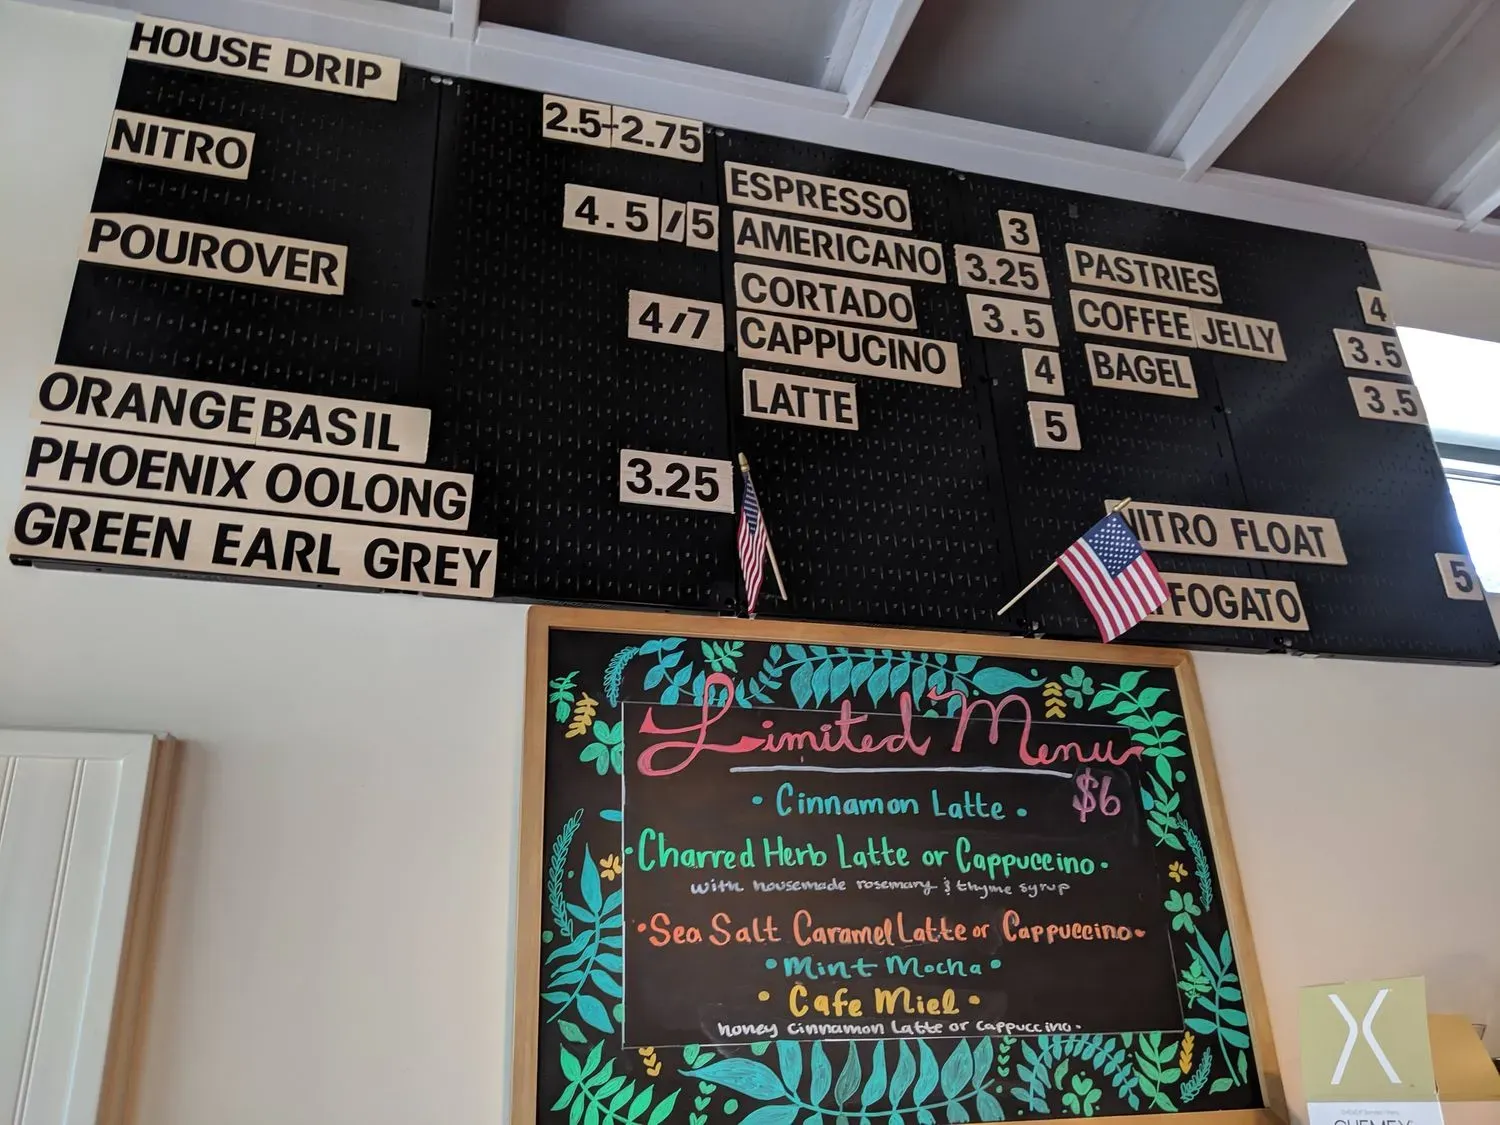 HOUSE DRIP 2.5-2.75
NITRO 4.5/5
POUROVER 4/7
ORANGE BASIL
PHOENIX OOLONG 3.25
GREEN EARL GREY
ESPRESSO 3
AMERICANO 3.25
CORTADO 3.5
CAPPUCINO 4
LATTE 5
PASTRIES 4
COFFEE JELLY 3.5
BAGEL 3.5
NITRO FLOAT 5
FFOGATO
Limited Menu
$6
• Cinnamon Latte •
• Charred Herb Latte or Cappuccino •
with housemade rosemary & thyme syrup
• Sea Salt Caramel Latte or Cappuccino •
• Mint Mocha •
• Cafe Miel •
honey cinnamon Latte or cappuccino •
CHEMEX